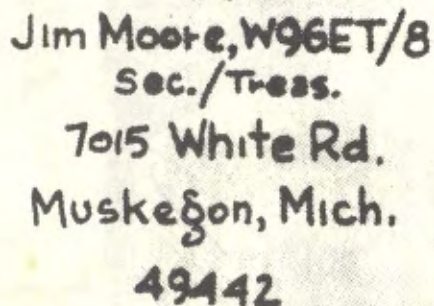 Jim Moore, W96ET/8
Sec./Treas.
7015 White Rd.
Muskegon, Mich.
49442